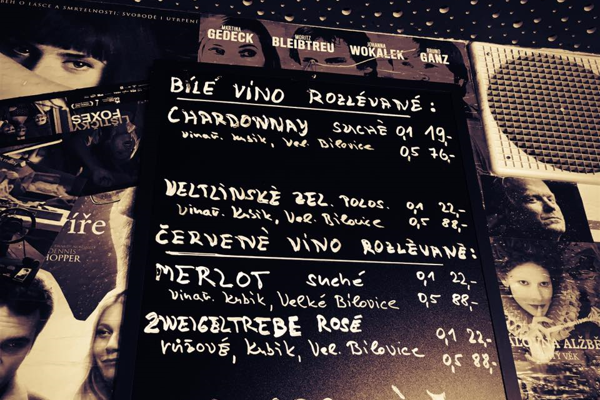 BĚH O LÁSCE A SMRTELNOSTI, SVOBODĚ I UTRPENÍ
MARTINA GEDECK
MORITZ BLEIBTREU
JOHANNA WOKALEK
BRUNO GANZ
BÍLÉ VÍNO ROZLÉVANÉ:
CHARDONNAY SUCHÉ 0,1 19,-
Vinař. Kubík, Vel. Bílovice 0,5 76,-
VELTLÍNSKÉ ZEL. POLOS. 0,1 22,-
Vinař. Kubík, Vel. Bílovice 0,5 88,-
ČERVENÉ VÍNO ROZLÉVANÉ:
MERLOT suché 0,1 22,-
Vinař. Kubík, Velké Bílovice 0,5 88,-
ZWEIGELTREBE ROSÉ 0,1 22,-
růžové, Kubík, Vel. Bílovice 0,5 88,-
LISTIČKY
FOXES
íře
DENNIS
HOPPER
ALŽBĚ
VĚK